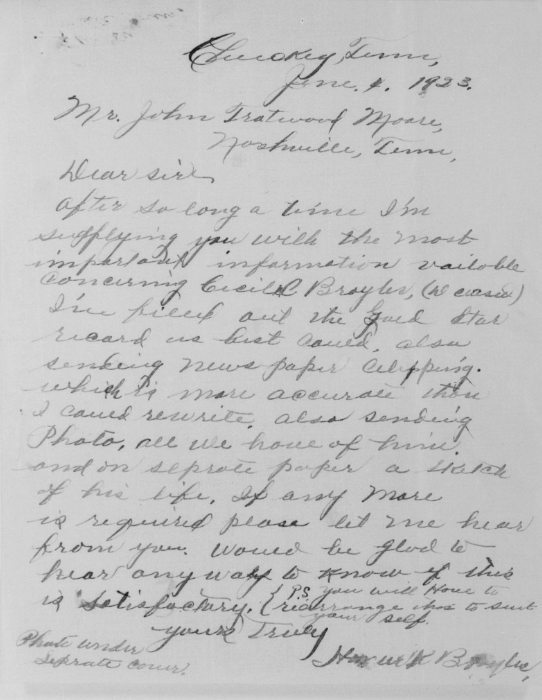 Chuckey, Tenn,
June. 1. 1923.
Mr. John Tratwood Moore,
Nashville, Tenn,
Dear sir,
After so long a time I'm
supplying you with the most
important information vailoble
concerning Cecil C Broyles,
I've filled out the Gold Star
record as best could, also
sending news paper clipping.
which is more accurate than
I could rewrite, also sending
Photo, all we have of him.
and on seprote paper a sketch
of his life, If any more
is required please let me hear
from you. Would be glad to
hear any way to know if this
is satisfactory. { P.S. you will have to
(rearrange this to suit
your self.
yours Truly
Photo under
seprate cover.
K Broyles,